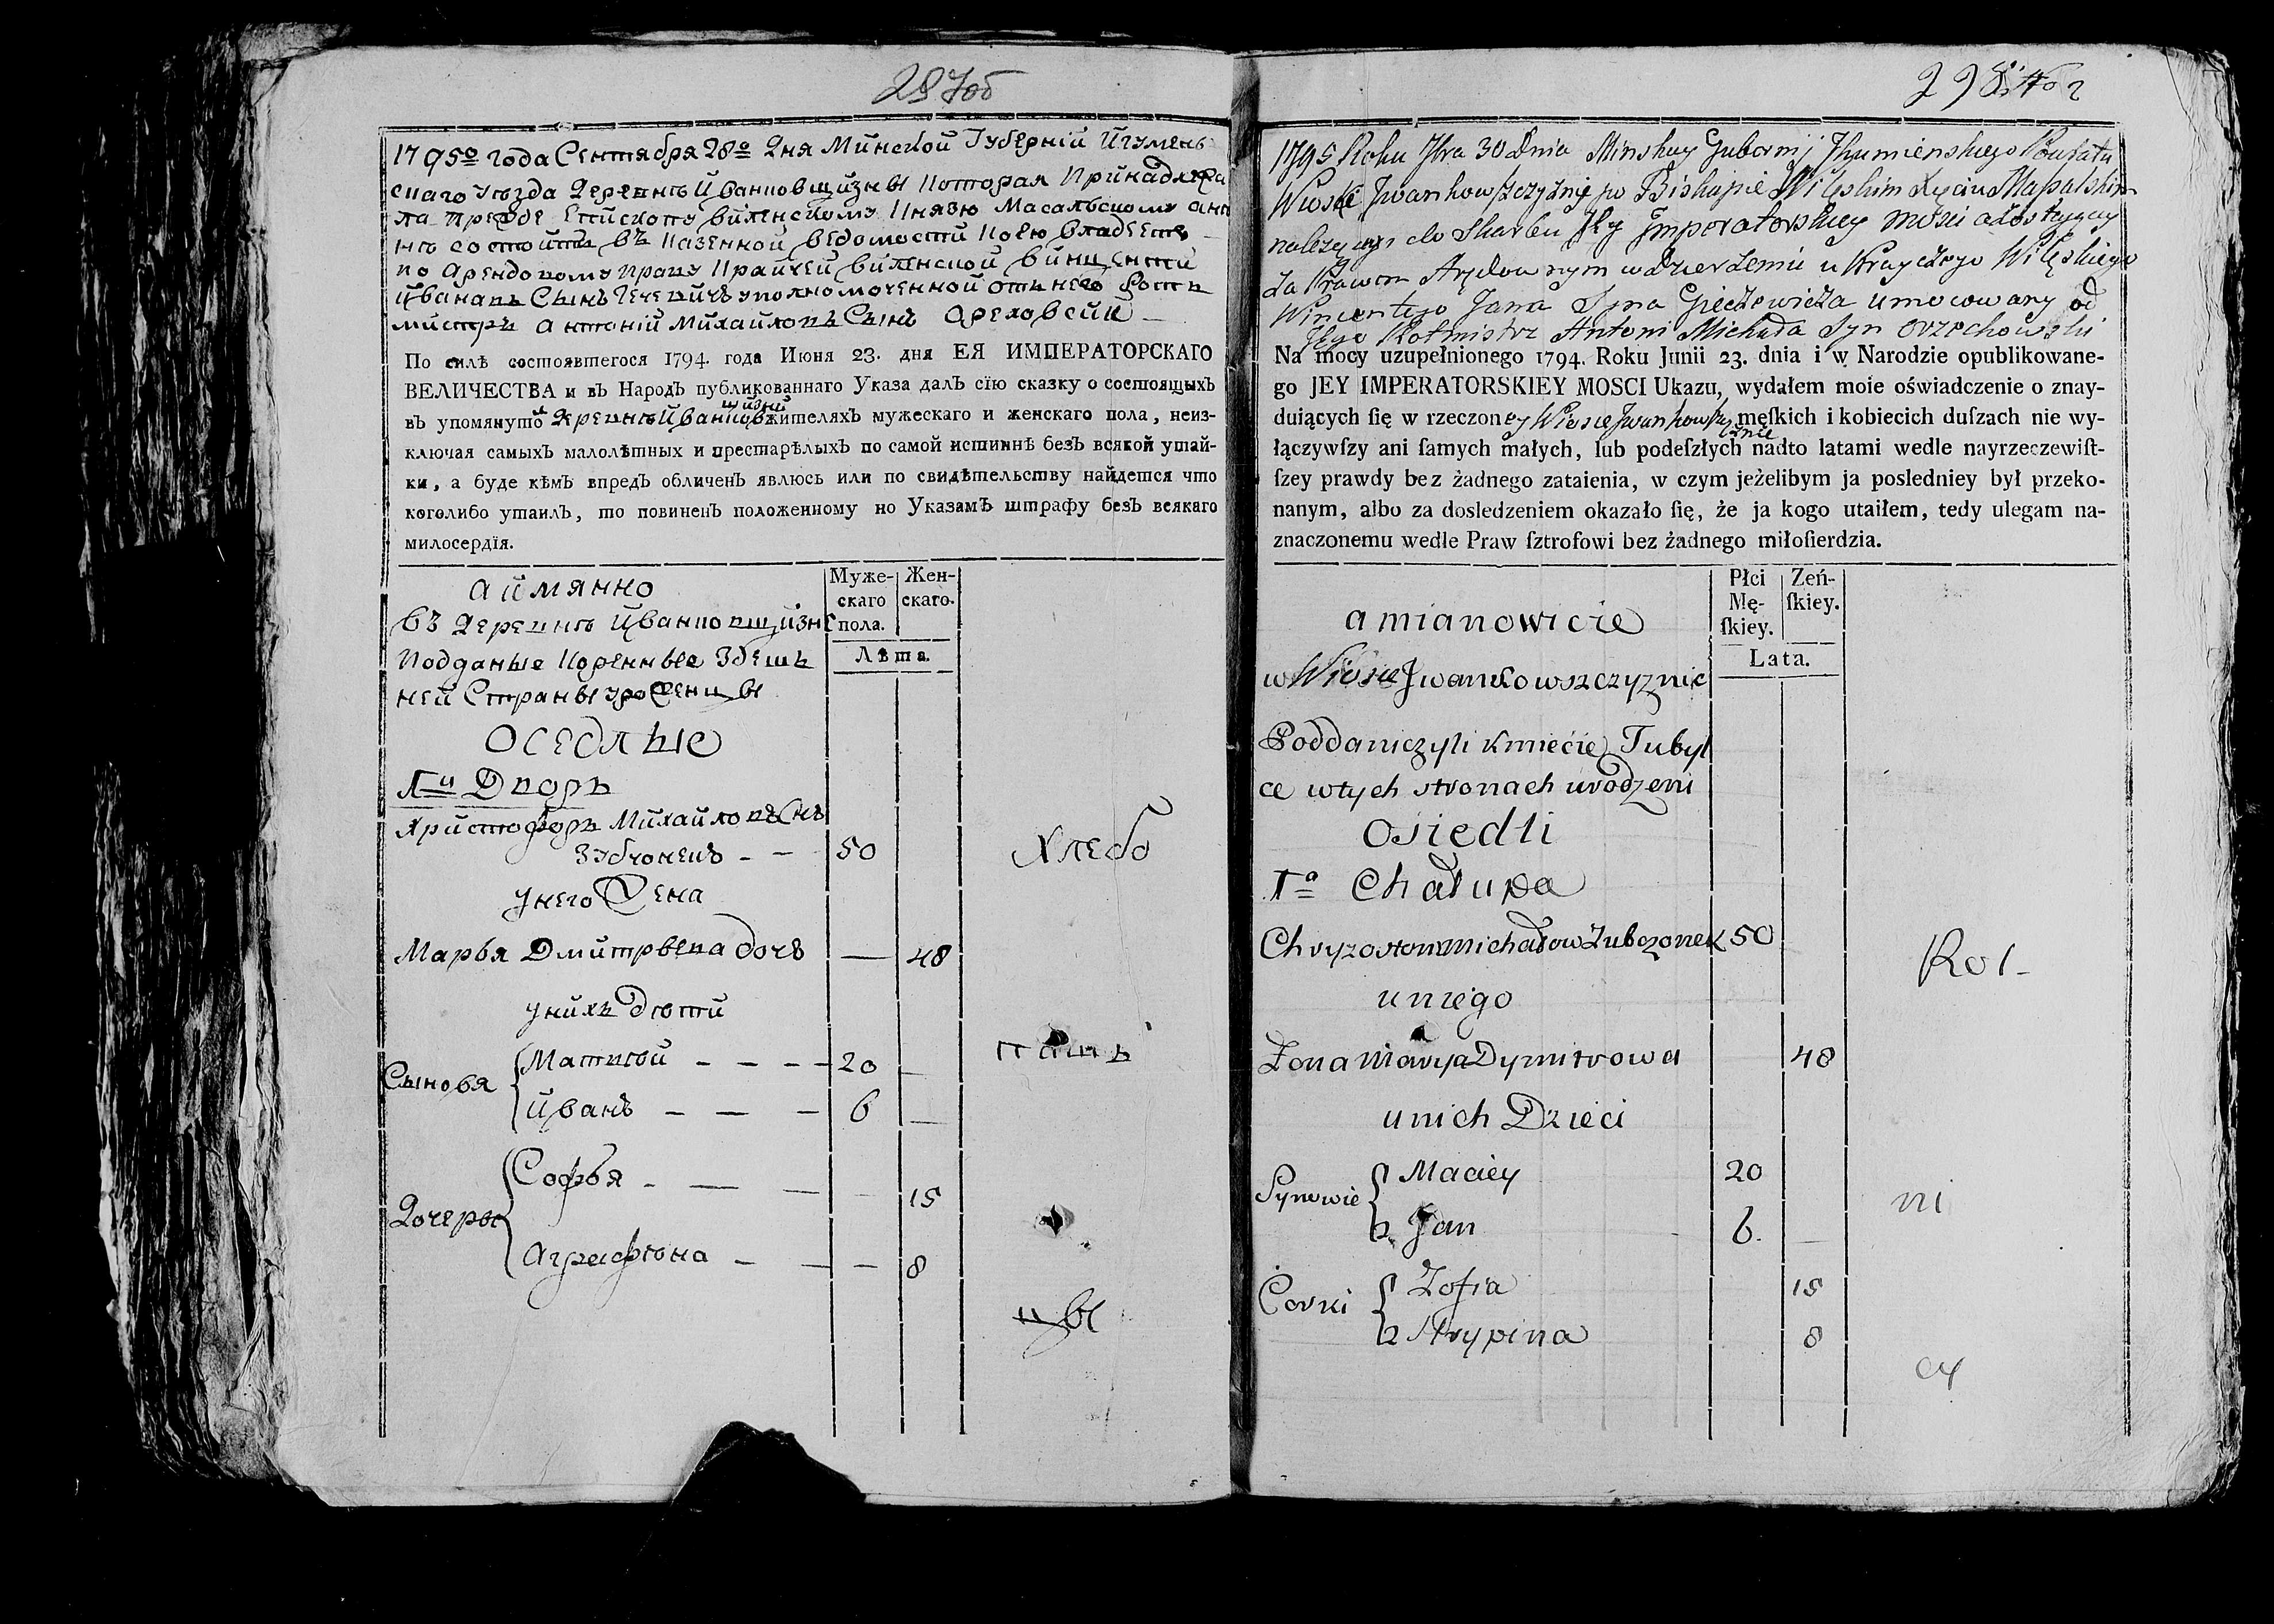 297об
1795го года Сентября 28го дня Минской Губерніи Игумень
скаго уѣзда деревнѣ Иванковщизны которая принадлежа
ла прежде Епископу виленскому Князю Масальскому а нн
нѣ состоитъ въ казенной ведомости коею владѣетъ
по арендовому праву крайчей виленской Винцентій
Ивановъ Сынъ Гечевичъ уполномоченной отъ него Рот
мистръ Антоній Михайловъ Сынъ Ореховскій
По силѣ состоявшегося 1794. года Июня 23. дня ЕЯ ИМПЕРАТОРСКАГО
ВЕЛИЧЕСТВА и въ Народъ публикованнаго Указа далъ сїю сказку о состоящыхъ
въ упомянутой деревнѣ Иванковщизны жителяхъ мужескаго и женскаго пола, неиз-
ключая самыхъ малолѣтных и престарѣлыхъ по самой истиннѣ безъ всякой утай-
ки, а буде кѣмъ впредъ обличенъ явлюсь или по свидѣтельству найдется что
коголибо утаилъ, то повиненъ положенному по Указамъ штрафу безъ всякаго
милосердїя.
а имянно
Муже- Жен-
скаго скаго.
пола.
Лѣта.
въ деревнѣ Иванковщизнѣ
подданые коренные здешъ
ней Страны уроженцы
Оседлые
1и Дворъ
Христофоръ Михайловъ Снъ
Зубчонекъ - - 50
Хлебо
у него Жена
Марья Дмитрвена дочь — 48
у нихъ дѣти
Сыновя
Матвѣй - - - - 20 —
пашъ
Иванъ - - - 6 —
Дочеры
Софья - — — - 15
Агрефѣна - - - 8
цы
298
1795 Roku 7bra 30 Dnia Minskey Gubernij Jhumienskiego Powiatu
Wioski Jwankowszczyznie po Biskupie Wileskim Xięciu Massalskim
należącey do Skarbu Jey Jmperatorskiey mości
za Prawem Arędownym w dzierżeniu u Krayczego Wileskiego
Wincentego Jana Syna Gieczewicza umocowany od
Jego Rotmistrz Antoni Michała Syn Orzechowski
Na mocy uzupełnionego 1794. Roku Junii 23. dnia i w Narodzie opublikowane-
go JEY IMPERATORSKIEY MOSCI Ukazu, wydałem moie oświadczenie o znay-
duiących ſię w rzeczoney Wiosce Jwankowszczyznie męſkich i kobiecich duſzach nie wy-
łączywſzy ani ſamych małych, lub podeſzłych nadto latami wedle nayrzeczewiſt-
ſzey prawdy bez żadnego zataienia, w czym jeżelibym ja posledniey był przeko-
nanym, albo za dosledzeniem okazało ſię, że ja kogo utaiłem, tedy ulegam na-
znaczonemu wedle Praw ſztrofowi bez żadnego miłoſierdzia.
a mianowicie
Płci Zeń-
Mę- ſkiey.
ſkiey.
Lata.
w Wiosce Jwankowszczyznie
Poddani czyli kmiecie Tubyl
ce w tych stronach urodzeni
Osiedli
1a Chałupa
Chryzostom Michałow Zubczonek 50
Rol-
u niego
Zona Marya Dymitrowa 48
u nich Dzieci
Synowie
Maciey 20
ni
Jan 6. —
Corki
Zofia 15
Krypina 8
cy